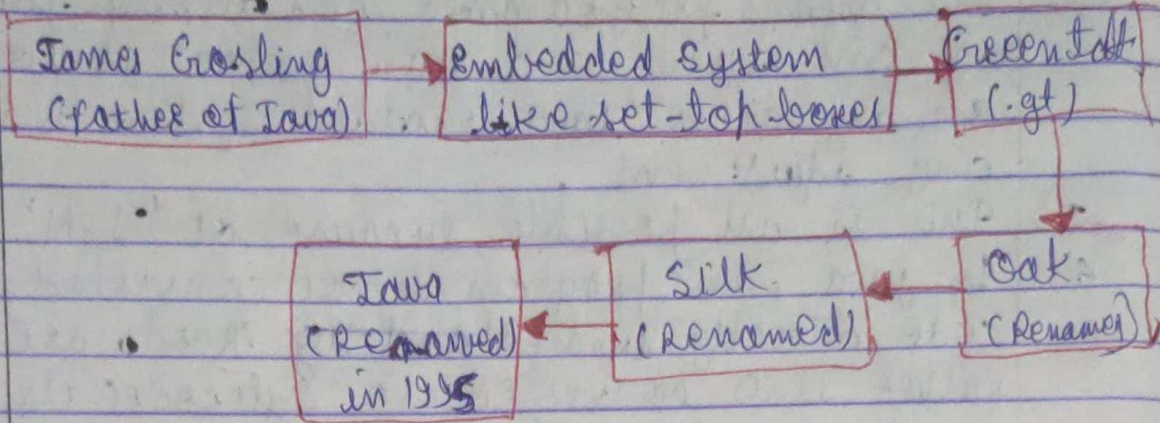 James Gosling
(father of Java)
Embedded System
like set-top boxes
GreenTalk
(.gt)
Oak
(Renamed)
Silk
(Renamed)
Java
(Renamed)
in 1995